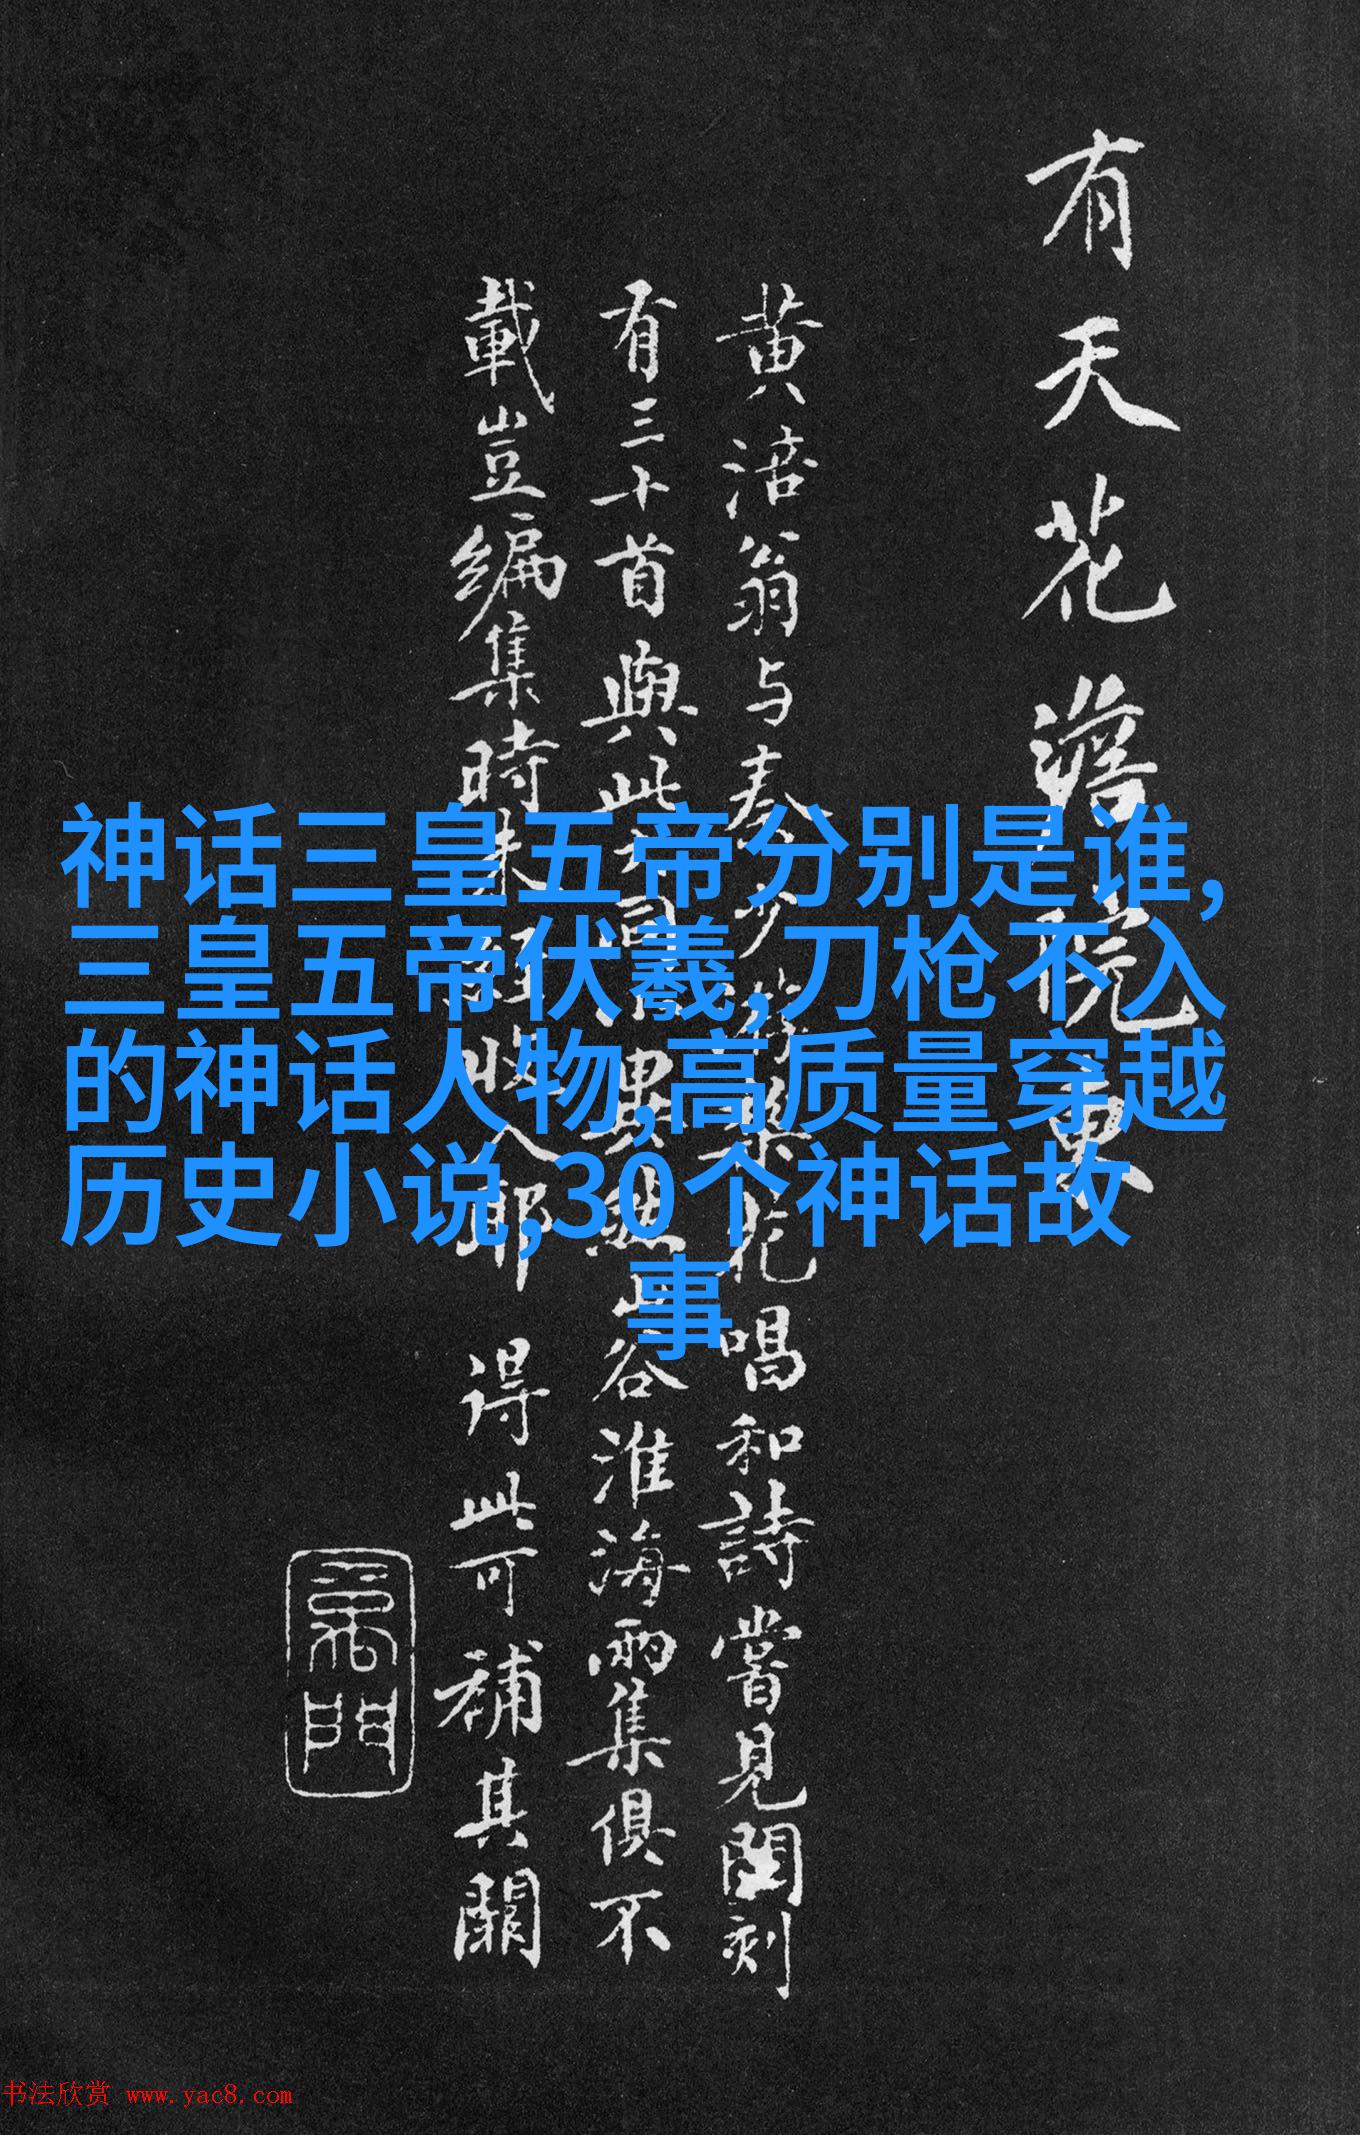 有天花滿院東
黄涪翁与秦少游樂花唱和詩嘗見閣刻
有三十首與此不同者畢然山谷淮海兩集俱不
載豈編集時未經收入耶 得此可補其闕
神话三皇五帝分别是谁,
三皇五帝伏羲,刀枪不入
的神话人物,高质量穿越
历史小说,30个神话故
事
书法欣赏 www.yac8.com